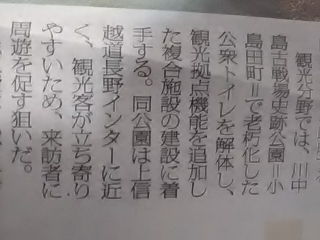 観光分野では、川中
島古戦場史跡公園＝小
島田町＝で老朽化した
公衆トイレを解体し、
観光拠点機能を追加し
た複合施設の建設に着
手する。同公園は上信
越道長野インターに近
く、観光客が立ち寄り
やすいため、来訪者に
周遊を促す狙いだ。